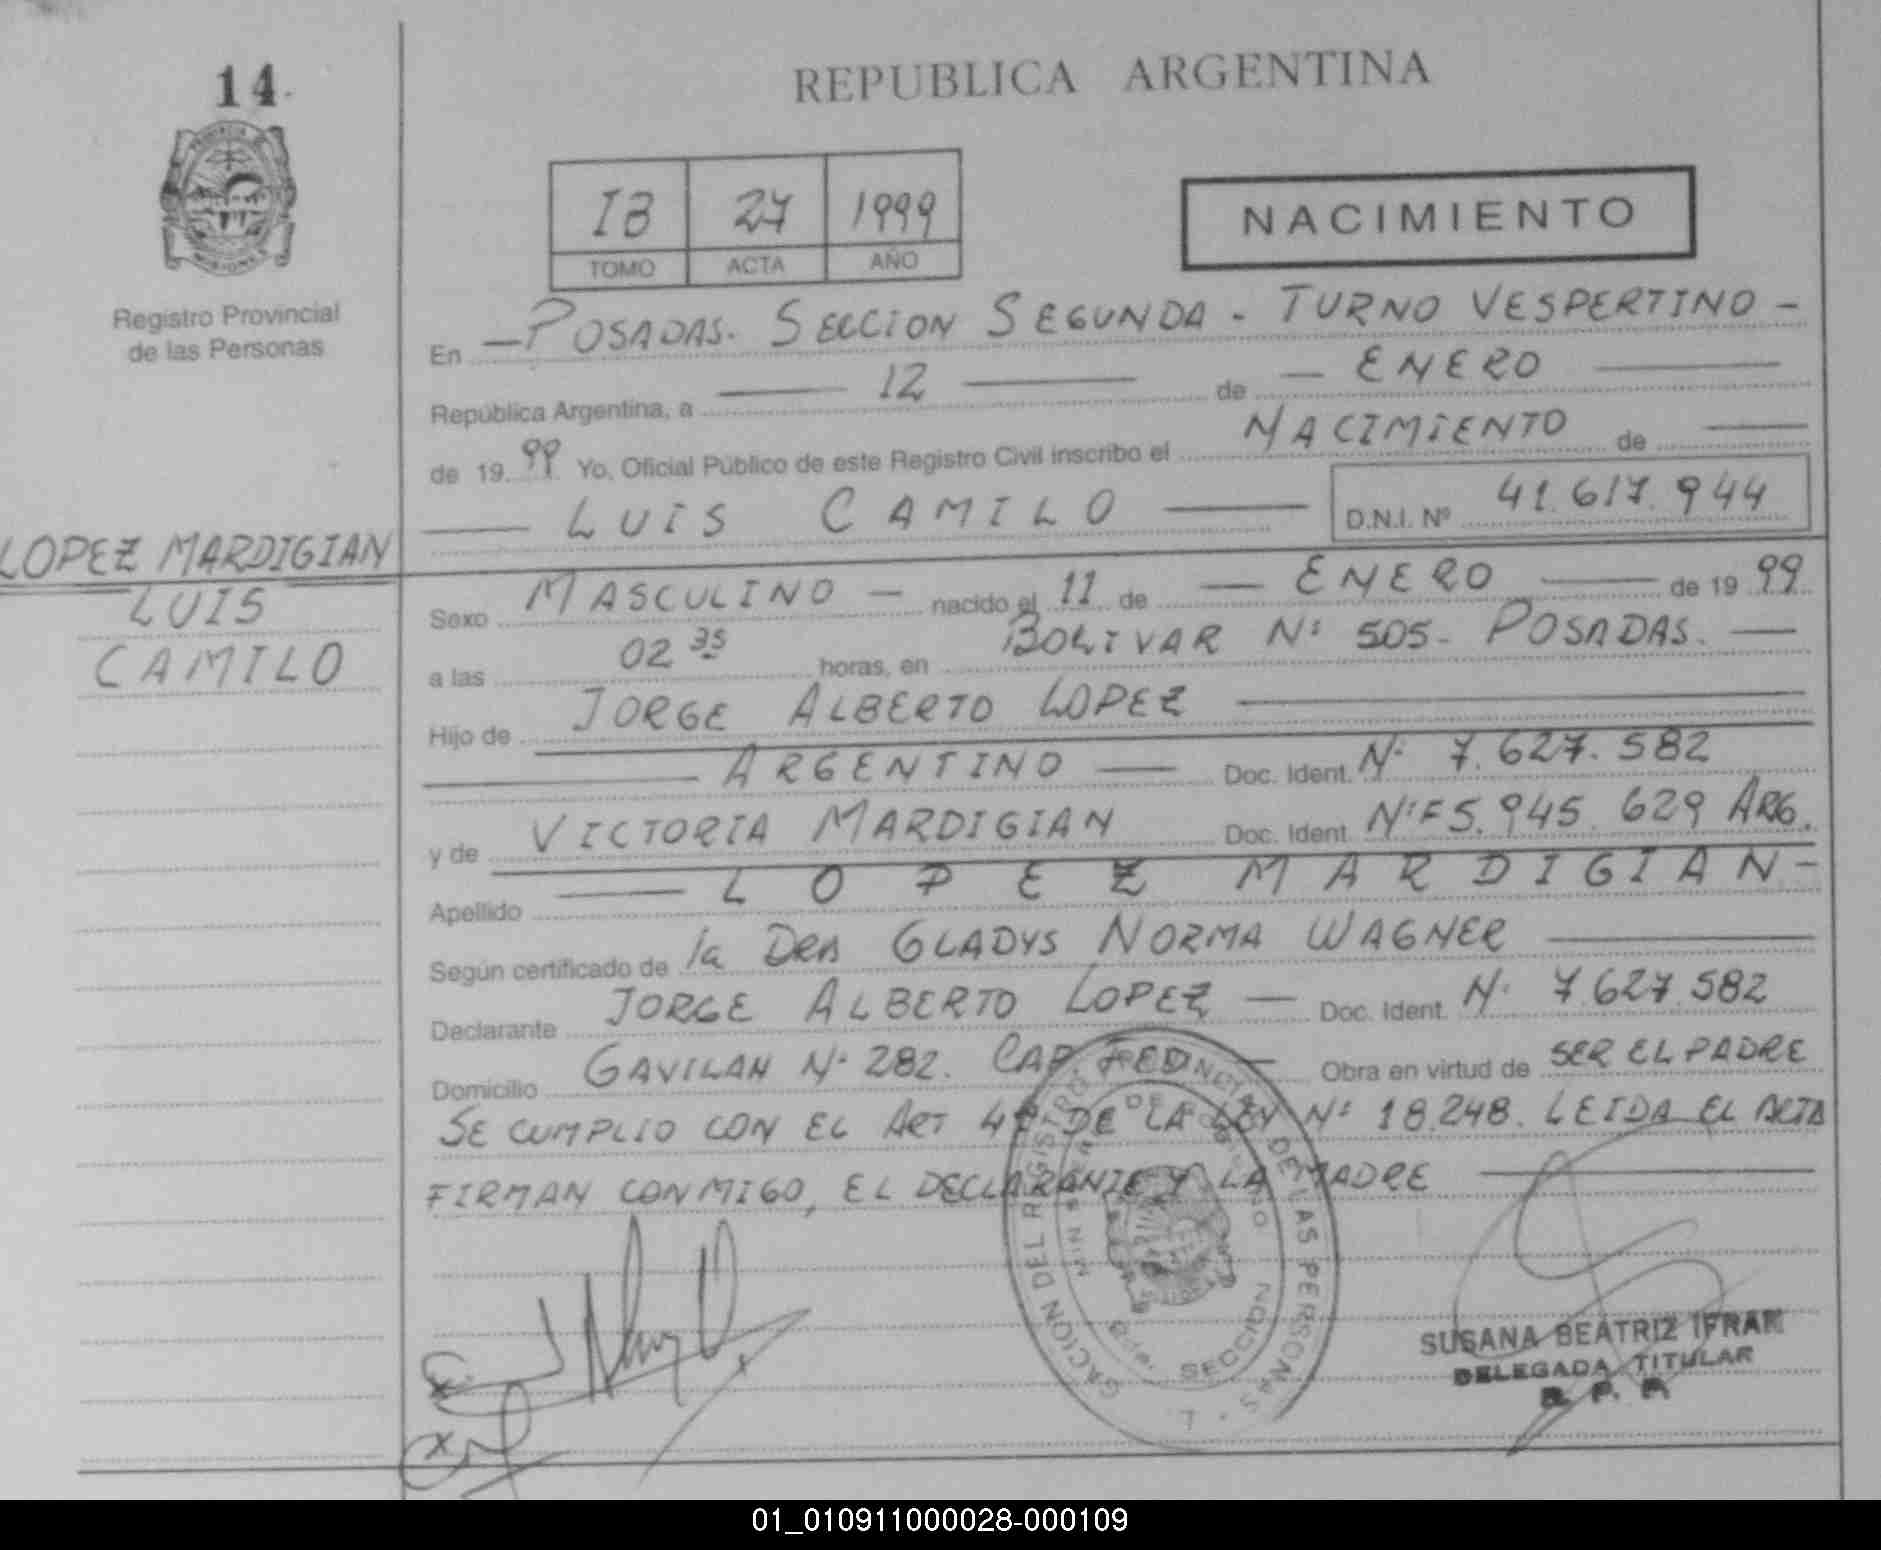 14
REPUBLICA ARGENTINA
IB 27 1999
TOMO ACTA AÑO
NACIMIENTO
Registro Provincial
de las Personas
En — POSADAS. SECCION SEGUNDA - TURNO VESPERTINO -
República Argentina, a — 12 — de — ENERO —
de 19 99 Yo, Oficial Público de este Registro Civil inscribo el NACIMIENTO de —
— LUIS CAMILO — D.N.I. Nº 41.617.944
LOPEZ MARDIGIAN
LUIS
CAMILO
Sexo MASCULINO — nacido el 11 de — ENERO — de 19 99
a las 02 35 horas, en BOLIVAR Nº 505 - POSADAS. —
Hijo de JORGE ALBERTO LOPEZ —
— ARGENTINO — Doc. Ident. Nº 7.627.582
y de VICTORIA MARDIGIAN Doc. Ident. Nº F5.945.629 ARG.
Apellido — LOPEZ MARDIGIAN -
Según certificado de la DRA GLADYS NORMA WAGNER —
Declarante JORGE ALBERTO LOPEZ — Doc. Ident. Nº 7.627.582
Domicilio GAVILAN Nº 282. CAP. FED — Obra en virtud de SER EL PADRE
SE CUMPLIO CON EL ART 4º DE LA LEY Nº 18.248. LEIDA EL ACTA
FIRMAN CONMIGO, EL DECLARANTE Y LA MADRE —
DEL REGISTRO PROVINCIAL DE LAS PERSONAS
SECCION
SUSANA BEATRIZ IFRAN
DELEGADA TITULAR
R. P. P.
01_010911000028-000109